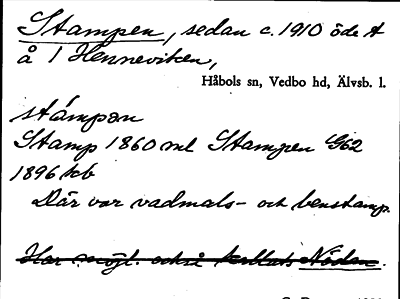 Stampen, sedan c. 1910 öde t
å 1 Henneviken,
Håbols sn, Vedbo hd, Älvsb. l.
stámpən
Stamp 1860 ml Stampen G62
1896 kb
Där var vadmals- och benstamp.
Har möjl. också kallats Nöden.